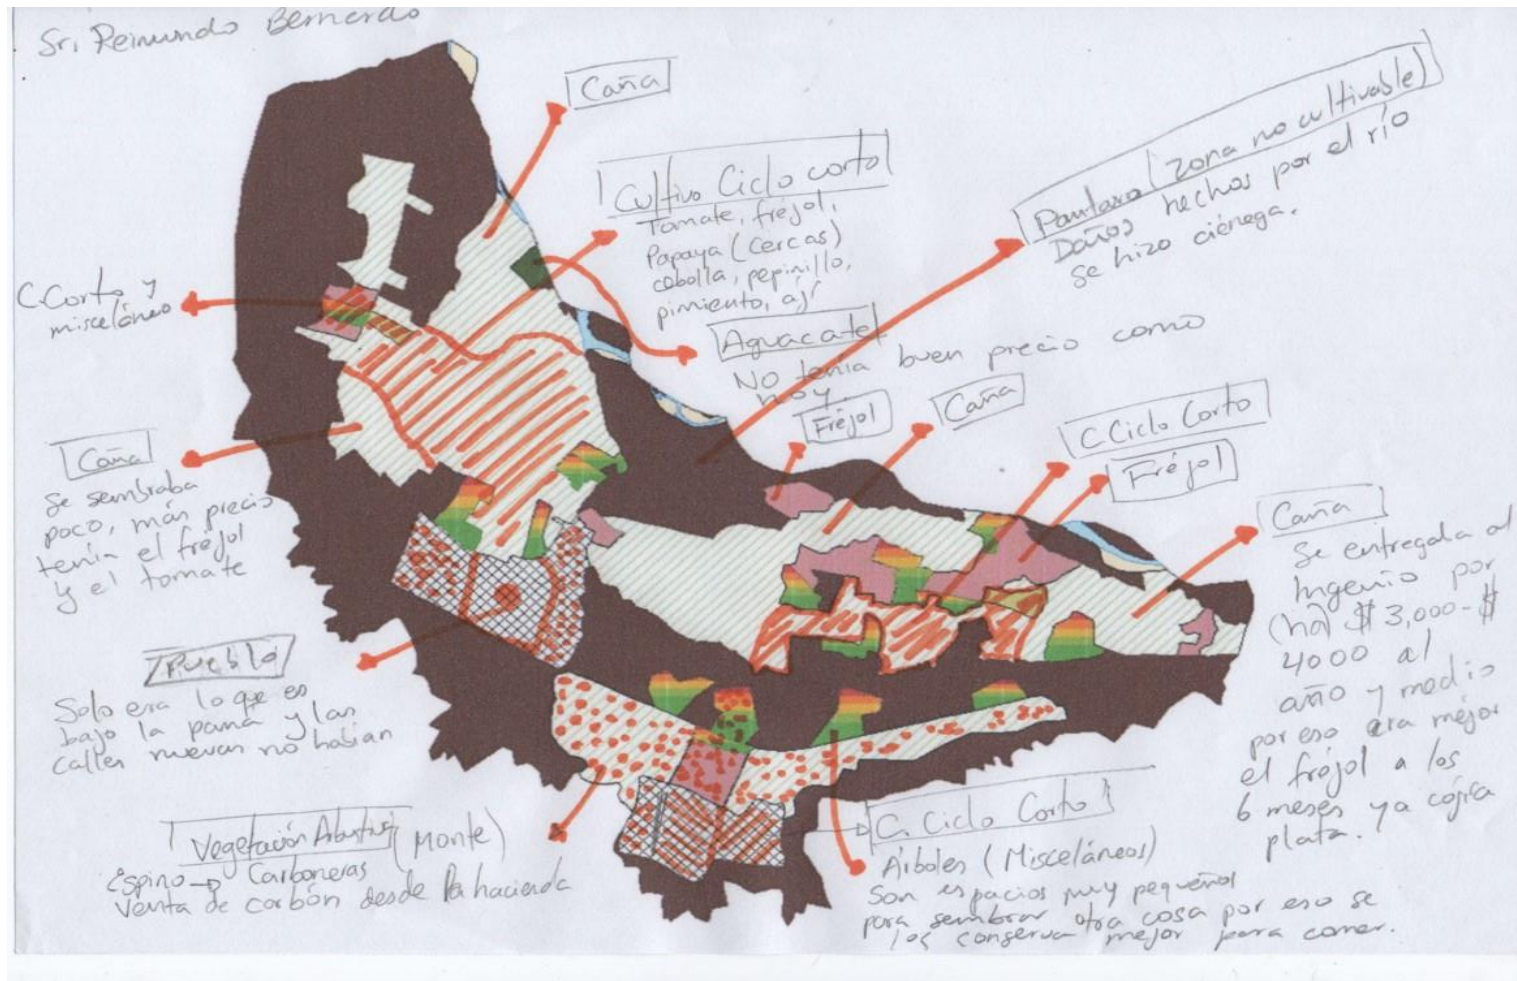 Sr. Reimundo Bernardo
Caña
Cultivo Ciclo corto
Tomate, fréjol,
Papaya (Cercas)
cebolla, pepinillo,
pimiento, ají
Pantano (zona no cultivable)
Daños hechos por el río
se hizo ciénega.
C. Corto y
misceláneo
Aguacate
No tenía buen precio como
hoy.
Fréjol
Caña
C Ciclo Corto
Fréjol
Caña
Se sembraba
poco, más precio
tenía el fréjol
y el tomate
Caña
Se entregaba al
Ingenio por
(ha) $ 3,000 - $
4000 al
año y medio
por eso era mejor
el fréjol a los
6 meses ya cogía
plata.
Pueblo
Solo era lo que es
bajo la pana y las
calles nuevas no habían
Vegetación Arbustiva (Monte)
Espino → Carboneras
Venta de carbón desde la hacienda
C. Ciclo Corto
Árboles (Misceláneos)
Son espacios muy pequeños
para sembrar otra cosa por eso se
los conserva mejor para comer.